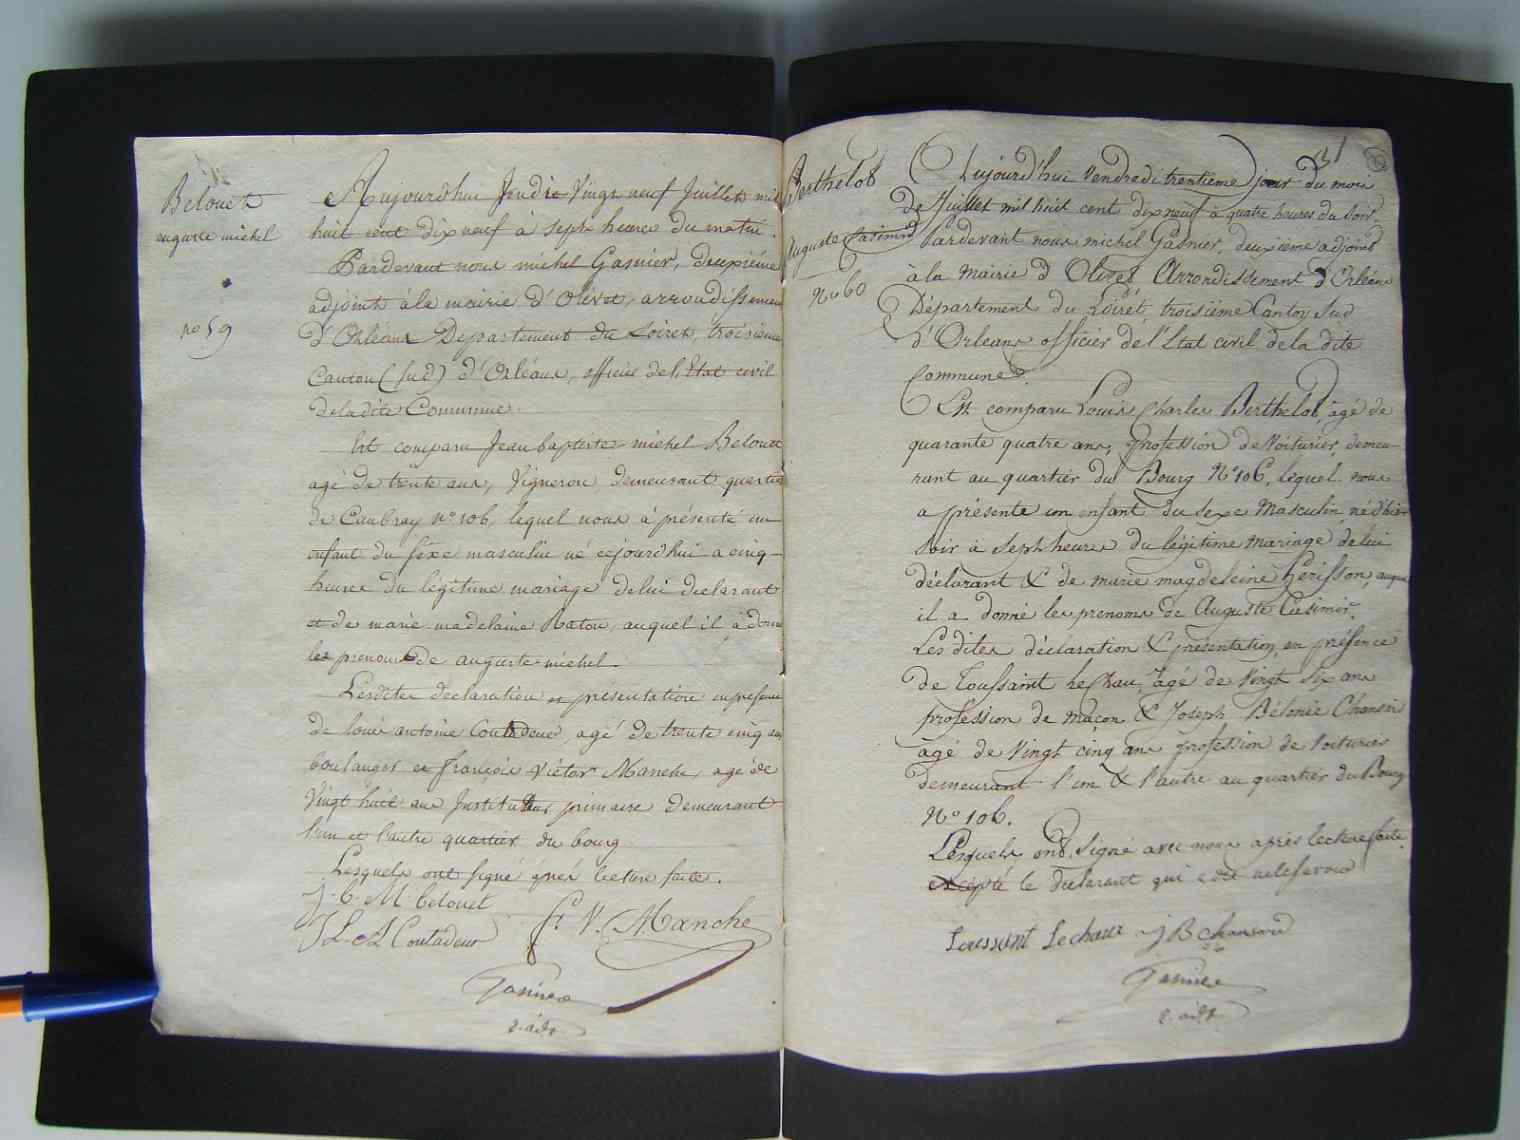 Belouet
auguste michel
no 59
Aujourdhui Jeudi Vingt neuf Juillet mil
huit cent dix neuf à sept heures du matin.
Pardevant nous michel Gasnier, deuxième
adjoint à la mairie d'Olivet, arrondissement
d'Orléans Departement du Loiret, troisieme
Canton (sud) d'Orléans, officier de l'Etat civil
de la dite Commune.
Est comparu Jean baptiste michel Belouet
agé de trente ans, Vigneron, demeurant quartier
de Caubray no 106, lequel nous à présenté un
enfant du sexe masculin né cejourd'hui a cinq
heures du légitime mariage de lui declarant
et de marie madelaine Raton, auquel il à donné
les prenoms de auguste michel.
Lesdites declaration et présentation en presence
de louis antoine Coutadeur, agé de trente cinq ans
boulanger et françois Victor Manche, agé de
Vingt huit ans Instituteur primaire demeurant
l'un et l'autre quartier du bourg
Lesquels ont signé après lecture faite.
J. B. M. belouet
L. A Coutadeur F. V. Manche
Gasnier
2. adjt
Berthelot
Auguste Casimir
No 60
Aujourd'hui Vendredi trentième jour du mois
de Juillet mil huit cent dix neuf à quatre heures du soir,
Pardevant nous michel Gasnier, deuxième adjoint
à la Mairie d'Olivet, Arrondissement d'Orléans
Département du Loiret, troisième Canton Sud
d'Orléans officier de l'Etat civil de la dite
Commune.
Est comparu Louis Charles Berthelot, âgé de
quarante quatre ans, profession de Voiturier, demeu-
rant au quartier du Bourg No 106, lequel nous
a présenté un enfant du sexe Masculin né d'hier
soir à sept heures du légitime mariage de lui
déclarant & de marie magdeleine hérisson, auquel
il a donné les prenoms de Auguste Casimir.
Les dites déclaration & présentation en présence
de Toussaint Lechau, âgé de Vingt six ans
profession de maçon & Joseph Bélonie Chansard
âgé de Vingt cinq ans profession de Voiturier
demeurant l'un & l'autre au quartier du Bourg
No 106.
Lesquels ont signé avec nous après lecture faite
excepté le declarant qui a dit ne le savoir
Toussaint Lechaux J B Chansard
Gasnier
2. adjt